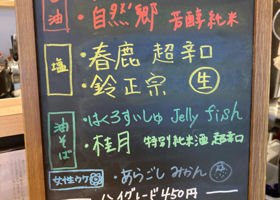 油 ・自然郷 芳醇純米
塩 ・春鹿 超辛口
・鈴正宗 生
油そば ・はくろすいしゅ Jelly fish
・桂月 特別純米酒 超辛口
女性ウケ ・あらごしみかん
ハイグレード450円